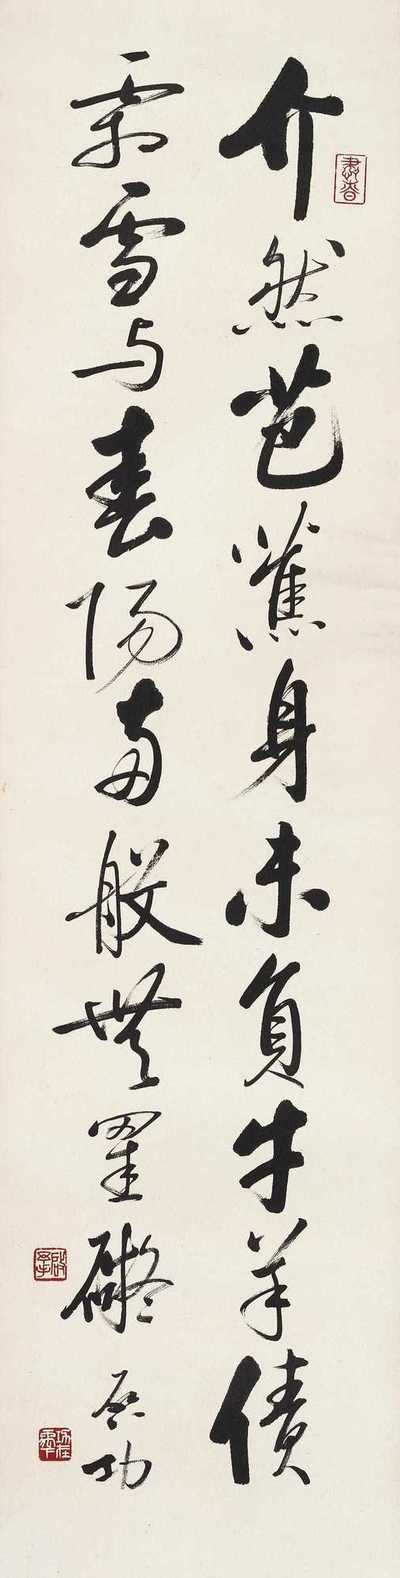 介然芭蕉身未負牛羊債
霜雪与春陽两般無罣礙
啓功